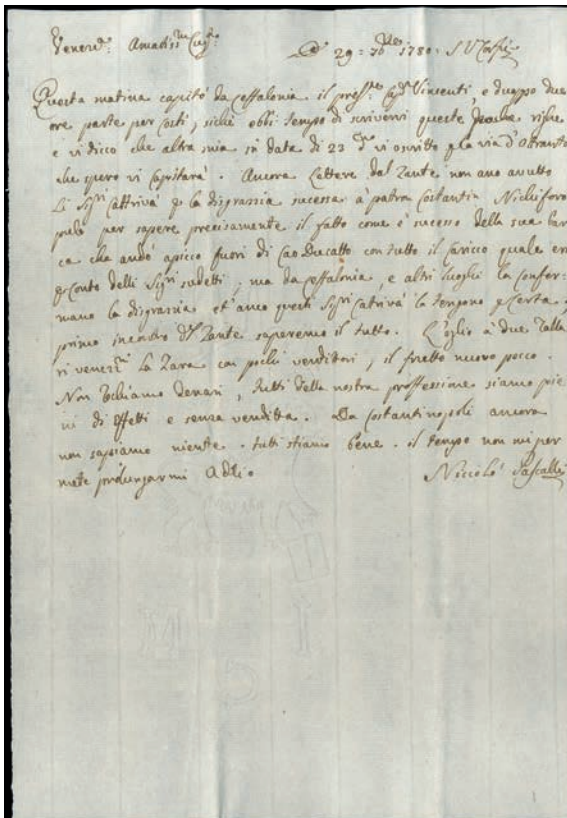 Venerd: Amatiss.mo Cug.o
29 = 7bre 1780 = SV Corfù
Questa matina capitò da Ceffalonia il pres.te Cap.n Vincenti, e duppo due
ore parte per costì, sichè ebbi tempo di scrivervi queste poche righe
e vi dicco che altra mia in data di 23 d.to vi oscritto p la via d'Otranto
che spero vi Capitarà. Ancora Lettere dal Zante non ano avutto
Li Sig.ri Cattrivà p la disgrassia sucessa à patron Costantin Nichiforo
per sapere precisamente il fatto come è sucesso della sua bar
ca che andò apicco fuori di Cao Ducatto con tutto il Caricco quale era
p Conto delli Sig.ri sudetti; ma da Ceffalonia, e altri luoghi la Confer=
mano la disgrasia et anco questi Sig.ri Catrivà la tengono p Certa,
primo incontro d.l Zante saperemo il tutto. L'oglio a due Talla
ri venez.ni La Zara con pochi venditori, il frutto nuovo pocco.
Non abiamo denari, tutti della nostra proffessione siamo pie
ni di effetti e senza venditta. Da Costantinopoli ancora
non sapiamo niente. tutti stiamo bene. il tempo non mi per
mete prolungarmi Adio
Niccolò Pascalli